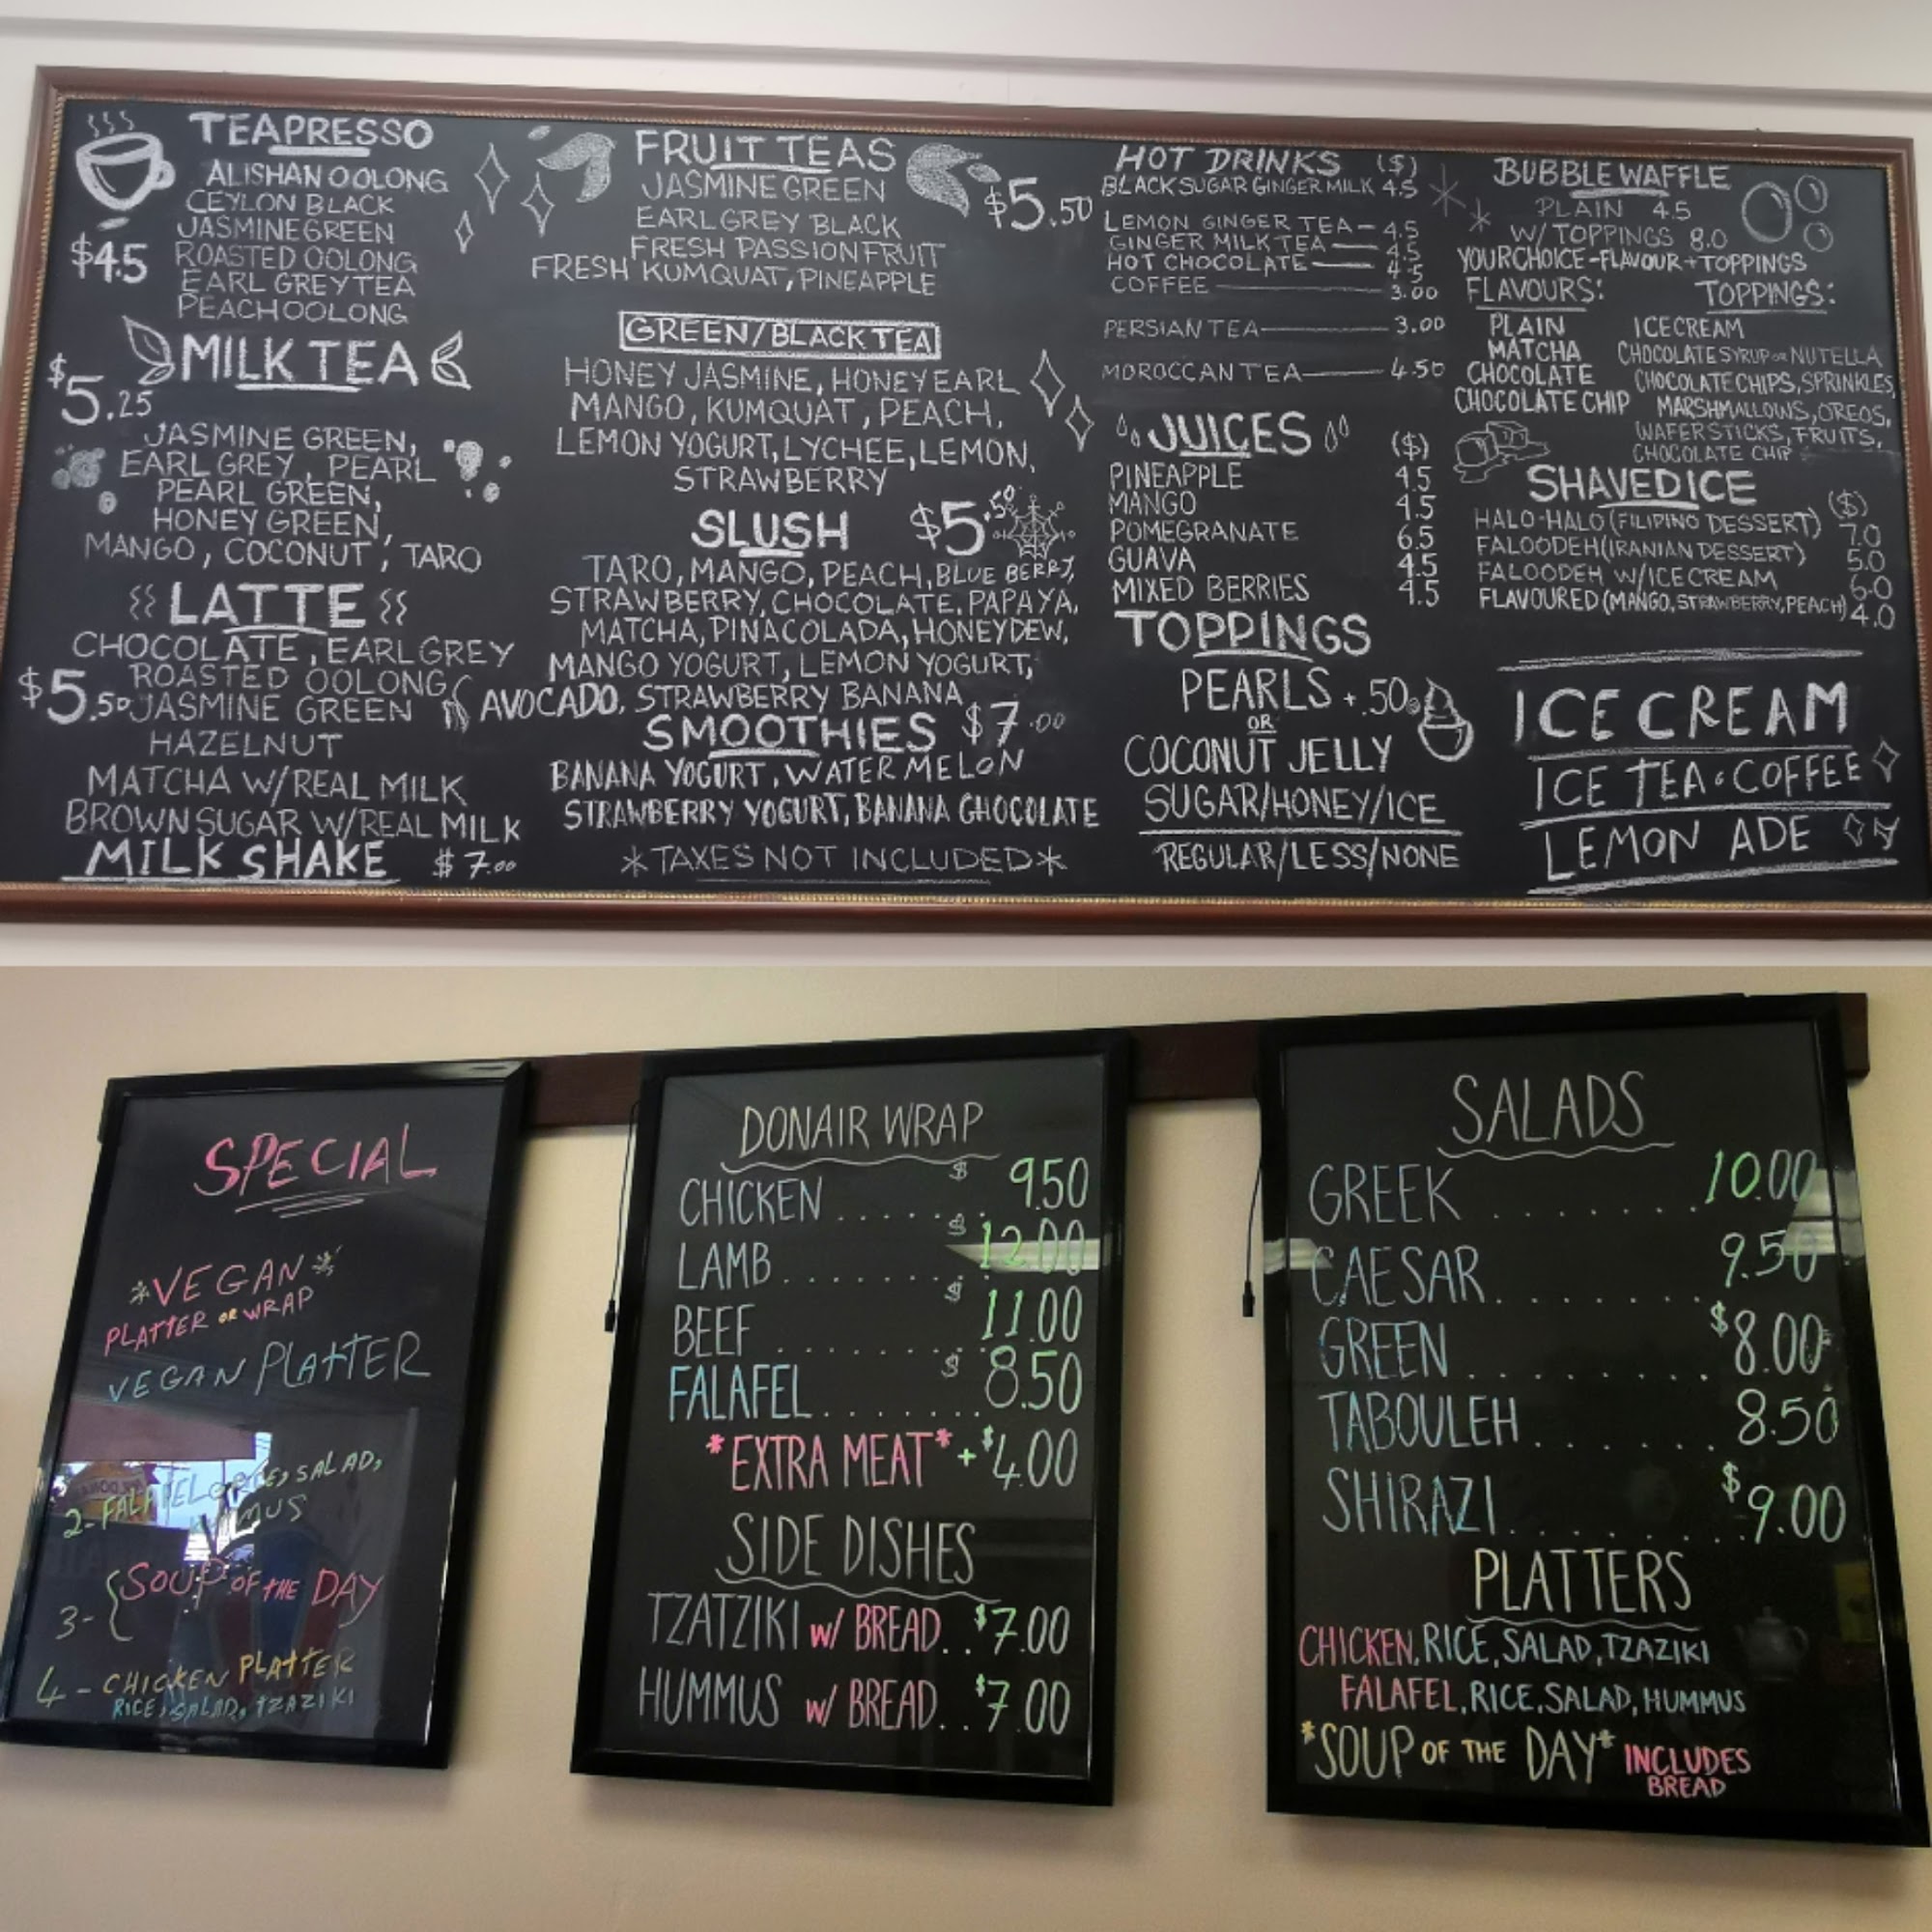 TEAPRESSO
ALISHAN OOLONG
CEYLON BLACK
JASMINE GREEN
$4.5
ROASTED OOLONG
EARL GREY TEA
PEACH OOLONG
MILK TEA
$5.25
JASMINE GREEN,
EARL GREY, PEARL
PEARL GREEN,
HONEY GREEN,
MANGO, COCONUT, TARO
LATTE
CHOCOLATE, EARL GREY
ROASTED OOLONG
$5.50 JASMINE GREEN
HAZELNUT
MATCHA W/REAL MILK
BROWN SUGAR W/REAL MILK
MILK SHAKE $7.00
FRUIT TEAS
$5.50
JASMINE GREEN
EARL GREY BLACK
FRESH PASSION FRUIT
FRESH KUMQUAT, PINEAPPLE
GREEN/BLACK TEA
HONEY JASMINE, HONEY EARL
MANGO, KUMQUAT, PEACH,
LEMON YOGURT, LYCHEE, LEMON,
STRAWBERRY
SLUSH $5.50
TARO, MANGO, PEACH, BLUE BERRY,
STRAWBERRY, CHOCOLATE, PAPAYA,
MATCHA, PINACOLADA, HONEYDEW,
MANGO YOGURT, LEMON YOGURT,
AVOCADO, STRAWBERRY BANANA
SMOOTHIES $7.00
BANANA YOGURT, WATER MELON
STRAWBERRY YOGURT, BANANA CHOCOLATE
*TAXES NOT INCLUDED*
HOT DRINKS ($)
BLACK SUGAR GINGER MILK 4.5
LEMON GINGER TEA - 4.5
GINGER MILK TEA - 4.5
HOT CHOCOLATE - 4.5
COFFEE - 3.00
PERSIAN TEA - 3.00
MOROCCAN TEA - 4.50
JUICES ($)
PINEAPPLE 4.5
MANGO 4.5
POMEGRANATE 6.5
GUAVA 4.5
MIXED BERRIES 4.5
TOPPINGS
PEARLS +.50
OR
COCONUT JELLY
SUGAR/HONEY/ICE
REGULAR/LESS/NONE
BUBBLE WAFFLE
PLAIN 4.5
W/TOPPINGS 8.0
YOUR CHOICE - FLAVOUR + TOPPINGS
FLAVOURS: TOPPINGS:
PLAIN ICE CREAM
MATCHA CHOCOLATE SYRUP OR NUTELLA
CHOCOLATE CHOCOLATE CHIPS, SPRINKLES,
CHOCOLATE CHIP MARSHMALLOWS, OREOS,
WAFER STICKS, FRUITS,
CHOCOLATE CHIP
SHAVED ICE ($)
HALO-HALO (FILIPINO DESSERT) 7.0
FALOODEH (IRANIAN DESSERT) 5.0
FALOODEH W/ICE CREAM 6.0
FLAVOURED (MANGO, STRAWBERRY, PEACH) 4.0
ICE CREAM
ICE TEA · COFFEE
LEMON ADE
SPECIAL
*VEGAN*
PLATTER OR WRAP
VEGAN PLATTER
2- FALAFEL, RICE, SALAD,
HUMMUS
3- {SOUP OF THE DAY
4 - CHICKEN PLATTER
RICE, SALAD, TZAZIKI
DONAIR WRAP
CHICKEN ...... $ 9.50
LAMB ........ $ 12.00
BEEF ........ $ 11.00
FALAFEL ....... $ 8.50
*EXTRA MEAT* + $4.00
SIDE DISHES
TZATZIKI w/ BREAD.. $7.00
HUMMUS w/ BREAD... $7.00
SALADS
GREEK ........ 10.00
CAESAR ........ 9.50
GREEN ........ $8.00
TABOULEH ....... 8.50
SHIRAZI ........ $9.00
PLATTERS
CHICKEN, RICE, SALAD, TZAZIKI
FALAFEL, RICE, SALAD, HUMMUS
*SOUP OF THE DAY* INCLUDES
BREAD